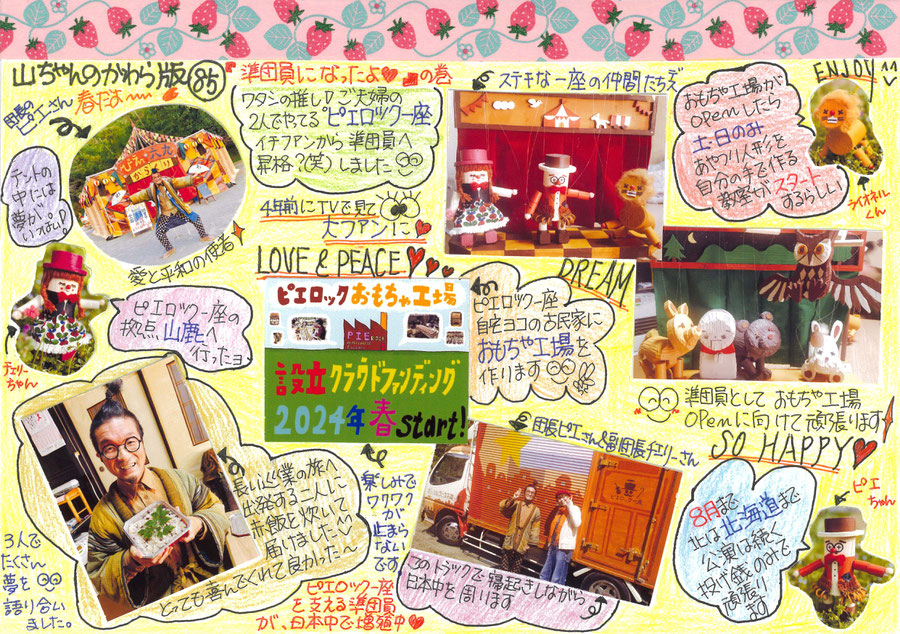 山ちゃんのかわら版 85
春だよ〜〜
準団員になったよ♥の巻
団長のピエさん
ワタシの推し♪ご夫婦の
2人でやってる"ピエロック一座
イチファンから準団員へ
昇格?(笑)しました
4年前にTVで見て
大ファンに
LOVE & PEACE
愛と平和の使者
テントの
中には
夢がいっぱい!
チェリーちゃん
ピエロック一座の
拠点 山鹿へ
行ったョ
ステキな一座の仲間たち
おもちゃ工場が
OPenしたら
土・日のみ
あやつり人形を
自分の手で作る
教室がスタート
するらしい
ENJOY
ライオネルくん
DREAM
ピエロック おもちゃ工場
PIEROCK
設立 クラウドファンディング
2024年 春 start!
ピエロック一座
自宅ヨコの古民家に
おもちゃ工場を
作ります
準団員として おもちゃ工場
OPenに向けて頑張ります
SO HAPPY
長い巡業の旅へ
出発する二人に
赤飯を炊いて
届けました
とっても喜んでくれて良かった〜
3人で
たくさん
夢を
語り合い
ました。
楽しみで
ワクワク
が
止まら
ない
です
団長ピエさん&副団長チェリーさん
このトラックで寝起きしながら
日本中を周ります
8月まで
北は北海道まで
公演は続く
投げ銭のみで
頑張り
ます
ピエちゃん
ピエロック一座
を支える準団員
が、日本中で増殖中